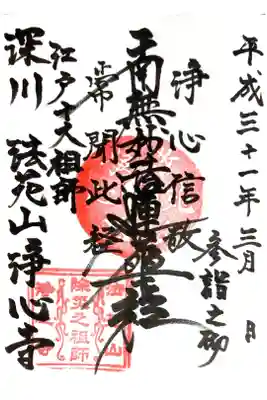 平成三十一年三月 日
参詣之砌
浄心信敬
南無妙法蓮華経
常聞此経
江戸十大祖師
深川 法苑山 浄心寺
除厄之祖師